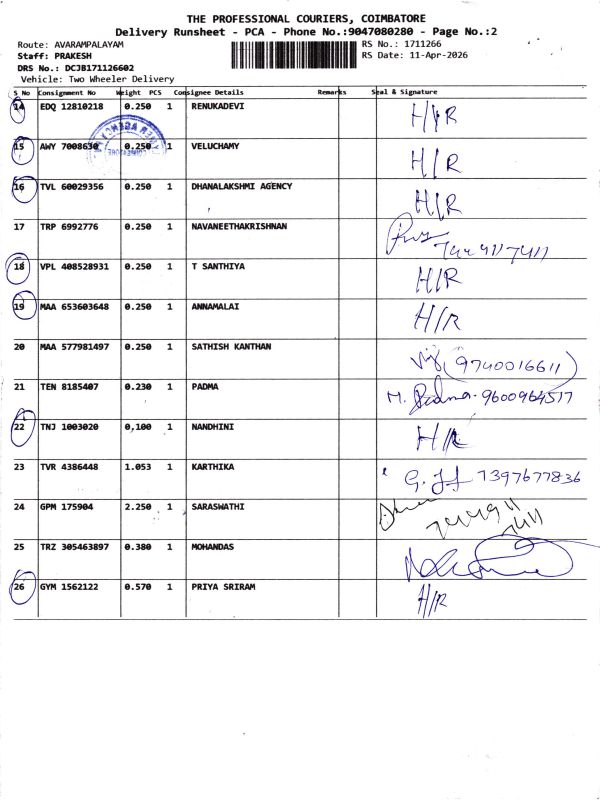 THE PROFESSIONAL COURIERS, COIMBATORE
Delivery Runsheet - PCA - Phone No.:9047080280 - Page No.:2
Route: AVARAMPALAYAM RS No.: 1711266
Staff: PRAKESH RS Date: 11-Apr-2026
DRS No.: DCJB171126602
Vehicle: Two Wheeler Delivery
S No Consignment No Weight PCS Consignee Details Remarks Seal & Signature
14 EDQ 12810218 0.250 1 RENUKADEVI H/R
15 AWY 7008630 0.250 1 VELUCHAMY H/R
16 TVL 60029356 0.250 1 DHANALAKSHMI AGENCY H/R
17 TRP 6992776 0.250 1 NAVANEETHAKRISHNAN
18 VPL 408528931 0.250 1 T SANTHIYA H/R
19 MAA 653603648 0.250 1 ANNAMALAI H/R
20 MAA 577981497 0.250 1 SATHISH KANTHAN (9740016611)
21 TEN 8185407 0.230 1 PADMA M. Padma. 9600964517
22 TNJ 1003020 0,100 1 NANDHINI H/R
23 TVR 4386448 1.053 1 KARTHIKA 7397677836
24 GPM 175904 2.250 1 SARASWATHI
25 TRZ 305463897 0.380 1 MOHANDAS
26 GYM 1562122 0.570 1 PRIYA SRIRAM H/R